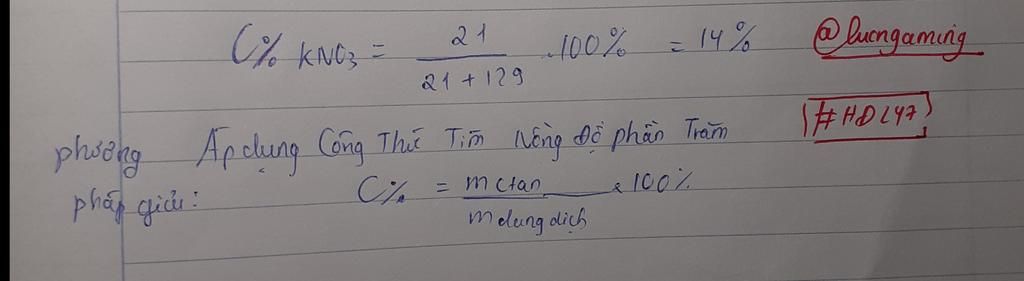 C% KNO3 = 21 / 21 + 129 .100% = 14% @lucngaming
phương Áp dụng Công Thức Tìm Nồng Độ phần Trăm #HDL47
pháp giải: C% = mctan / mdung dịch . 100%